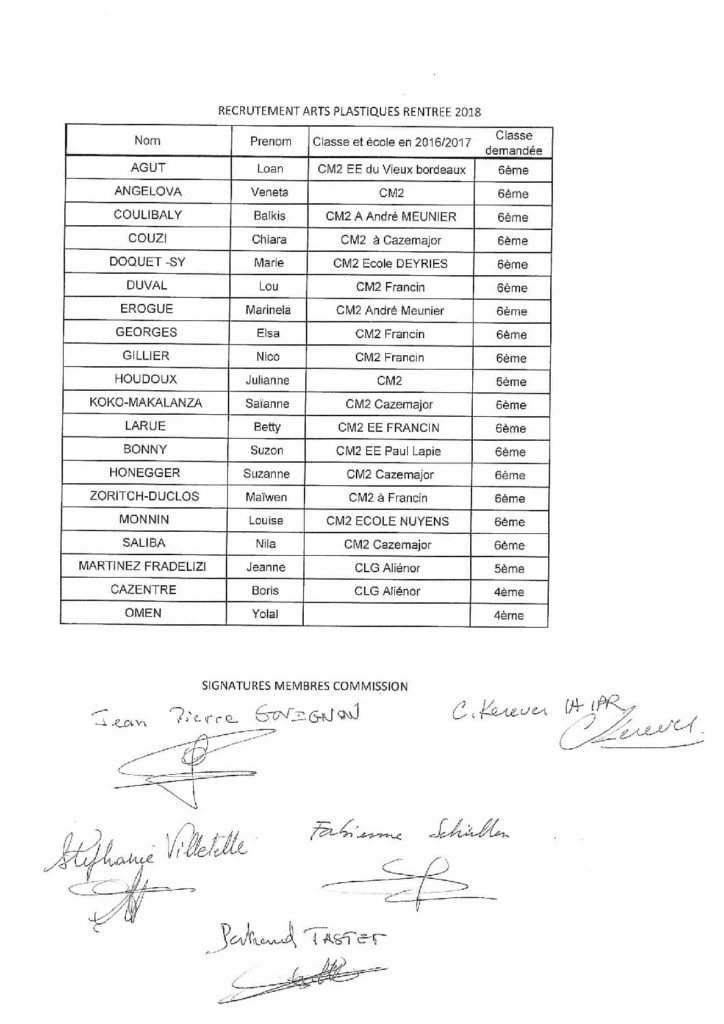 RECRUTEMENT ARTS PLASTIQUES RENTREE 2018
Nom Prenom Classe et école en 2016/2017 Classe demandée
AGUT Loan CM2 EE du Vieux bordeaux 6ème
ANGELOVA Veneta CM2 6ème
COULIBALY Balkis CM2 A André MEUNIER 6ème
COUZI Chiara CM2 à Cazemajor 6ème
DOQUET -SY Marie CM2 Ecole DEYRIES 6ème
DUVAL Lou CM2 Francin 6ème
EROGUE Marinela CM2 André Meunier 6ème
GEORGES Elsa CM2 Francin 6ème
GILLIER Nico CM2 Francin 6ème
HOUDOUX Julianne CM2 6ème
KOKO-MAKALANZA Saïanne CM2 Cazemajor 6ème
LARUE Betty CM2 EE FRANCIN 6ème
BONNY Suzon CM2 EE Paul Lapie 6ème
HONEGGER Suzanne CM2 Cazemajor 6ème
ZORITCH-DUCLOS Maïwen CM2 à Francin 6ème
MONNIN Louise CM2 ECOLE NUYENS 6ème
SALIBA Nila CM2 Cazemajor 6ème
MARTINEZ FRADELIZI Jeanne CLG Aliénor 5ème
CAZENTRE Boris CLG Aliénor 4ème
OMEN Yolal 4ème
SIGNATURES MEMBRES COMMISSION
Jean Pierre
C. Kerever IA IPR
Kerever
Stéphanie Villetelle
Fabienne
Bertrand TASTET